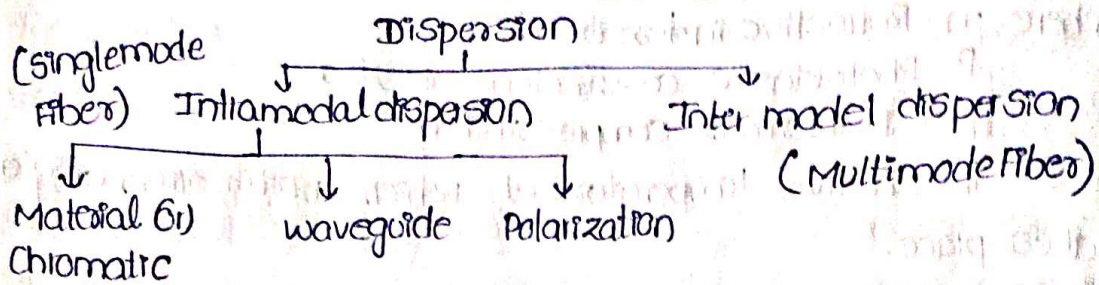 Dispersion
(singlemode
Fiber) Intramodal dispersion Inter model dispersion
(Multimode Fiber)
Material (or) waveguide Polarization
Chromatic